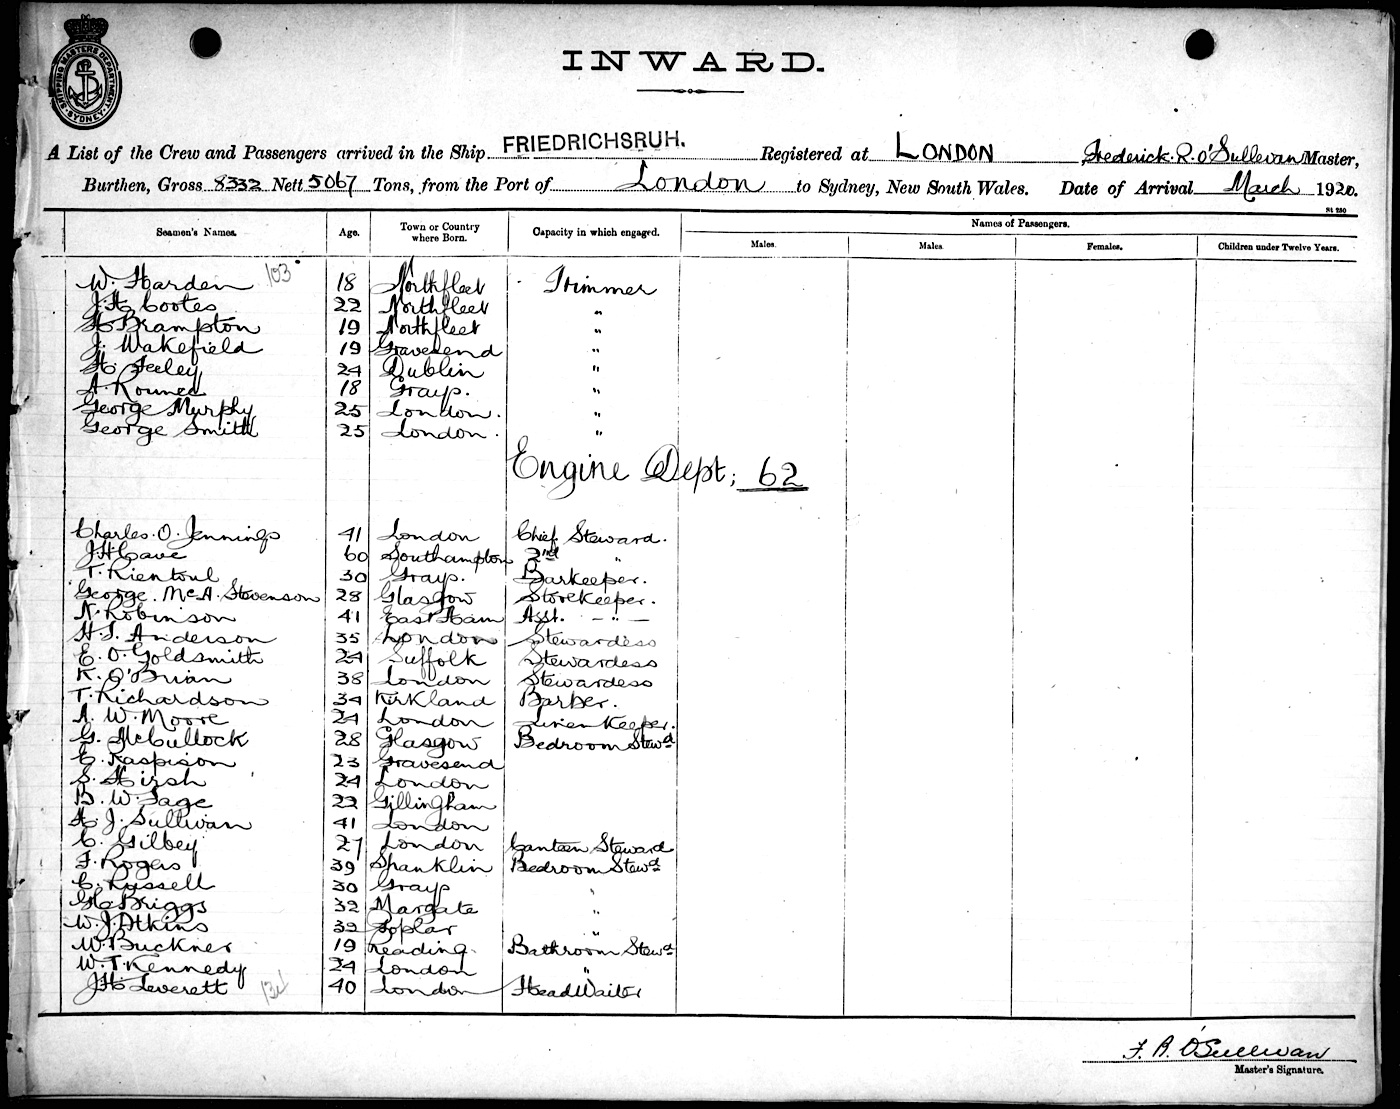 SHIPPING MASTERS DEPARTMENT SYDNEY
INWARD.
A List of the Crew and Passengers arrived in the Ship FRIEDRICHSRUH. Registered at LONDON Frederick. R. O'Sullevan Master,
Burthen, Gross 8332 Nett 5067 Tons, from the Port of London to Sydney, New South Wales. Date of Arrival March 1920.
St 230
Names of Passengers.
Seamen's Names. Age. Town or Country where Born. Capacity in which engaged. Males. Males. Females. Children under Twelve Years.
W. Harden 103 18 Northfleet Trimmer
J. H. Cootes 22 Northfleet "
H. Brampton 19 Northfleet "
J. Wakefield 19 Gravesend "
H. Feeley 24 Dublin "
A. 18 Grays. "
George Murphy 25 London. "
George Smith 25 London. "
Engine Dept; 62
Charles. O. Jennings 41 London Chief Steward.
J. H. Cave 60 Southampton 2nd "
T. Rientoul 30 Grays. Barkeeper.
George. McA. Stevenson 28 Glasgow Storekeeper.
N. Robinson 41 East Ham Asst. - " -
H. S. Anderson 35 London Stewardess
E. O. Goldsmith 24 Suffolk Stewardess
K. O'Brian 38 London Stewardess
T. Richardson 34 Kirkland Barber.
A. W. Moore 24 London Linen Keeper.
G. McCullock 28 Glasgow Bedroom Stewd
E. Raspison 23 Gravesend
S. Hirsh 24 London
B. W. Sage 22 Gillingham
H. J. Sullivan 41 London
C. Gilbey 27 London Canteen Steward
F. Rogers 39 Shanklin Bedroom Stewd
C. Russell 30 Grays "
G. H. Briggs 32 Margate "
W. J. Atkins 32 Poplar "
W. Buckner 19 Reading Bathroom Stewd
W. T. Kennedy 24 London "
J. H. Leverett 40 London Head Waiter
F. R. O'Sullivan
Master's Signature.